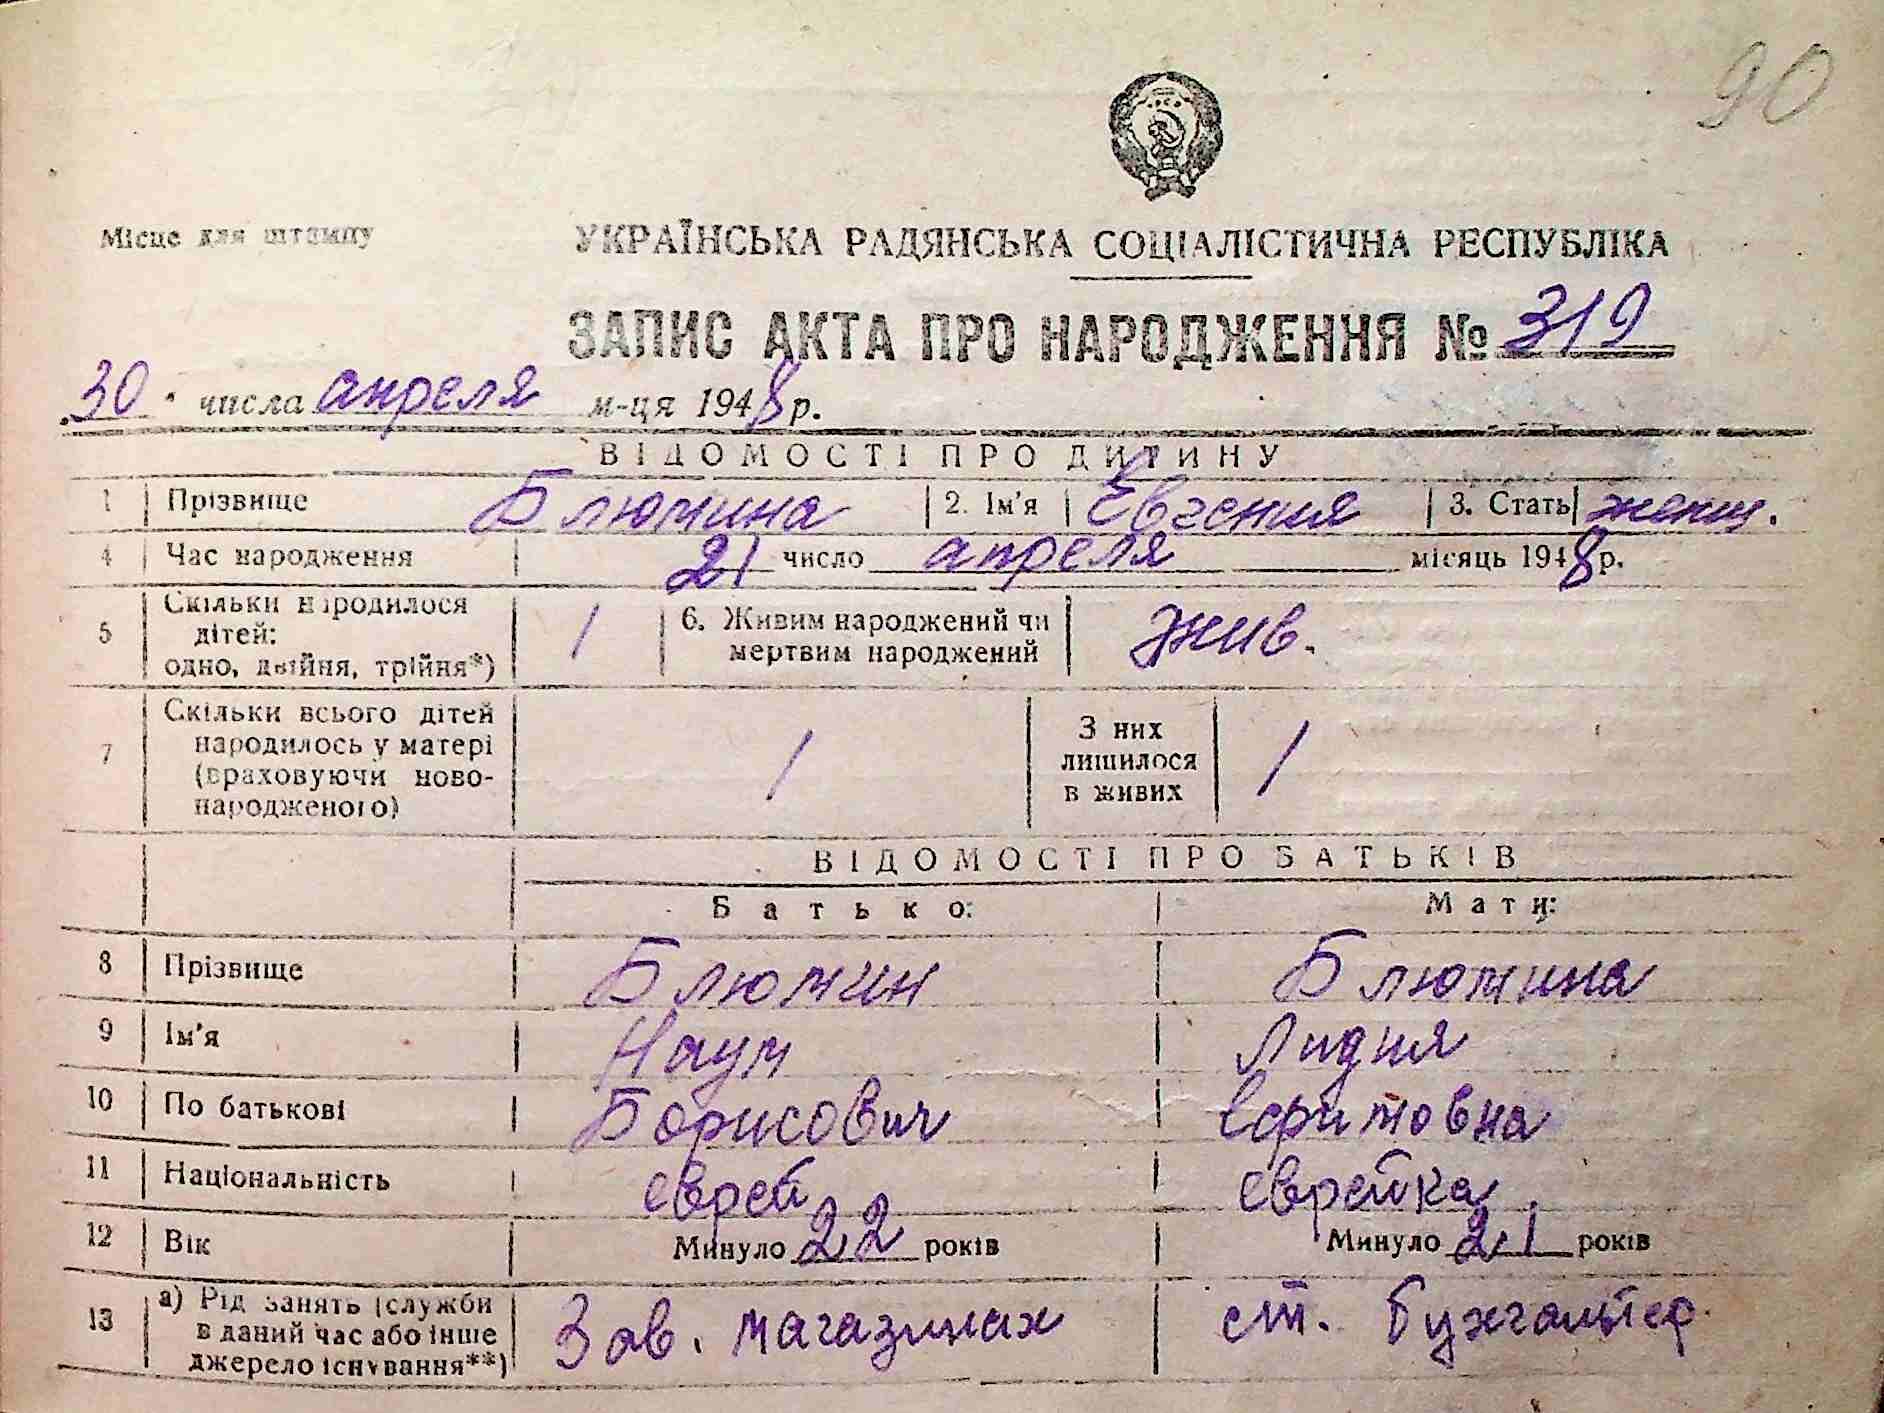 90
Місце для штампу
УКРАЇНСЬКА РАДЯНСЬКА СОЦІАЛІСТИЧНА РЕСПУБЛІКА
ЗАПИС АКТА ПРО НАРОДЖЕННЯ № 319
30 числа апреля м-ця 1948 р.
ВІДОМОСТІ ПРО ДИТИНУ
1 Прізвище Блюмина 2. Ім'я Евгения 3. Стать женщ.
4 Час народження 21 число апреля місяць 1948 р.
5 Скільки народилося дітей: одно, двійня, трійня*) 1 6. Живим народжений чи мертвим народжений Жив.
7 Скільки всього дітей народилось у матері (враховуючи новонародженого) 1 З них лишилося в живих 1
ВІДОМОСТІ ПРО БАТЬКІВ
Батько: Мати:
8 Прізвище Блюмин Блюмина
9 Ім'я Наум Лидия
10 По батькові Борисович Ефимовна
11 Національність еврей еврейка
12 Вік Минуло 22 років Минуло 21 років
13 а) Рід занять (служби в даний час або інше джерело існування**) Зав. магазинах ст. бухгалтер